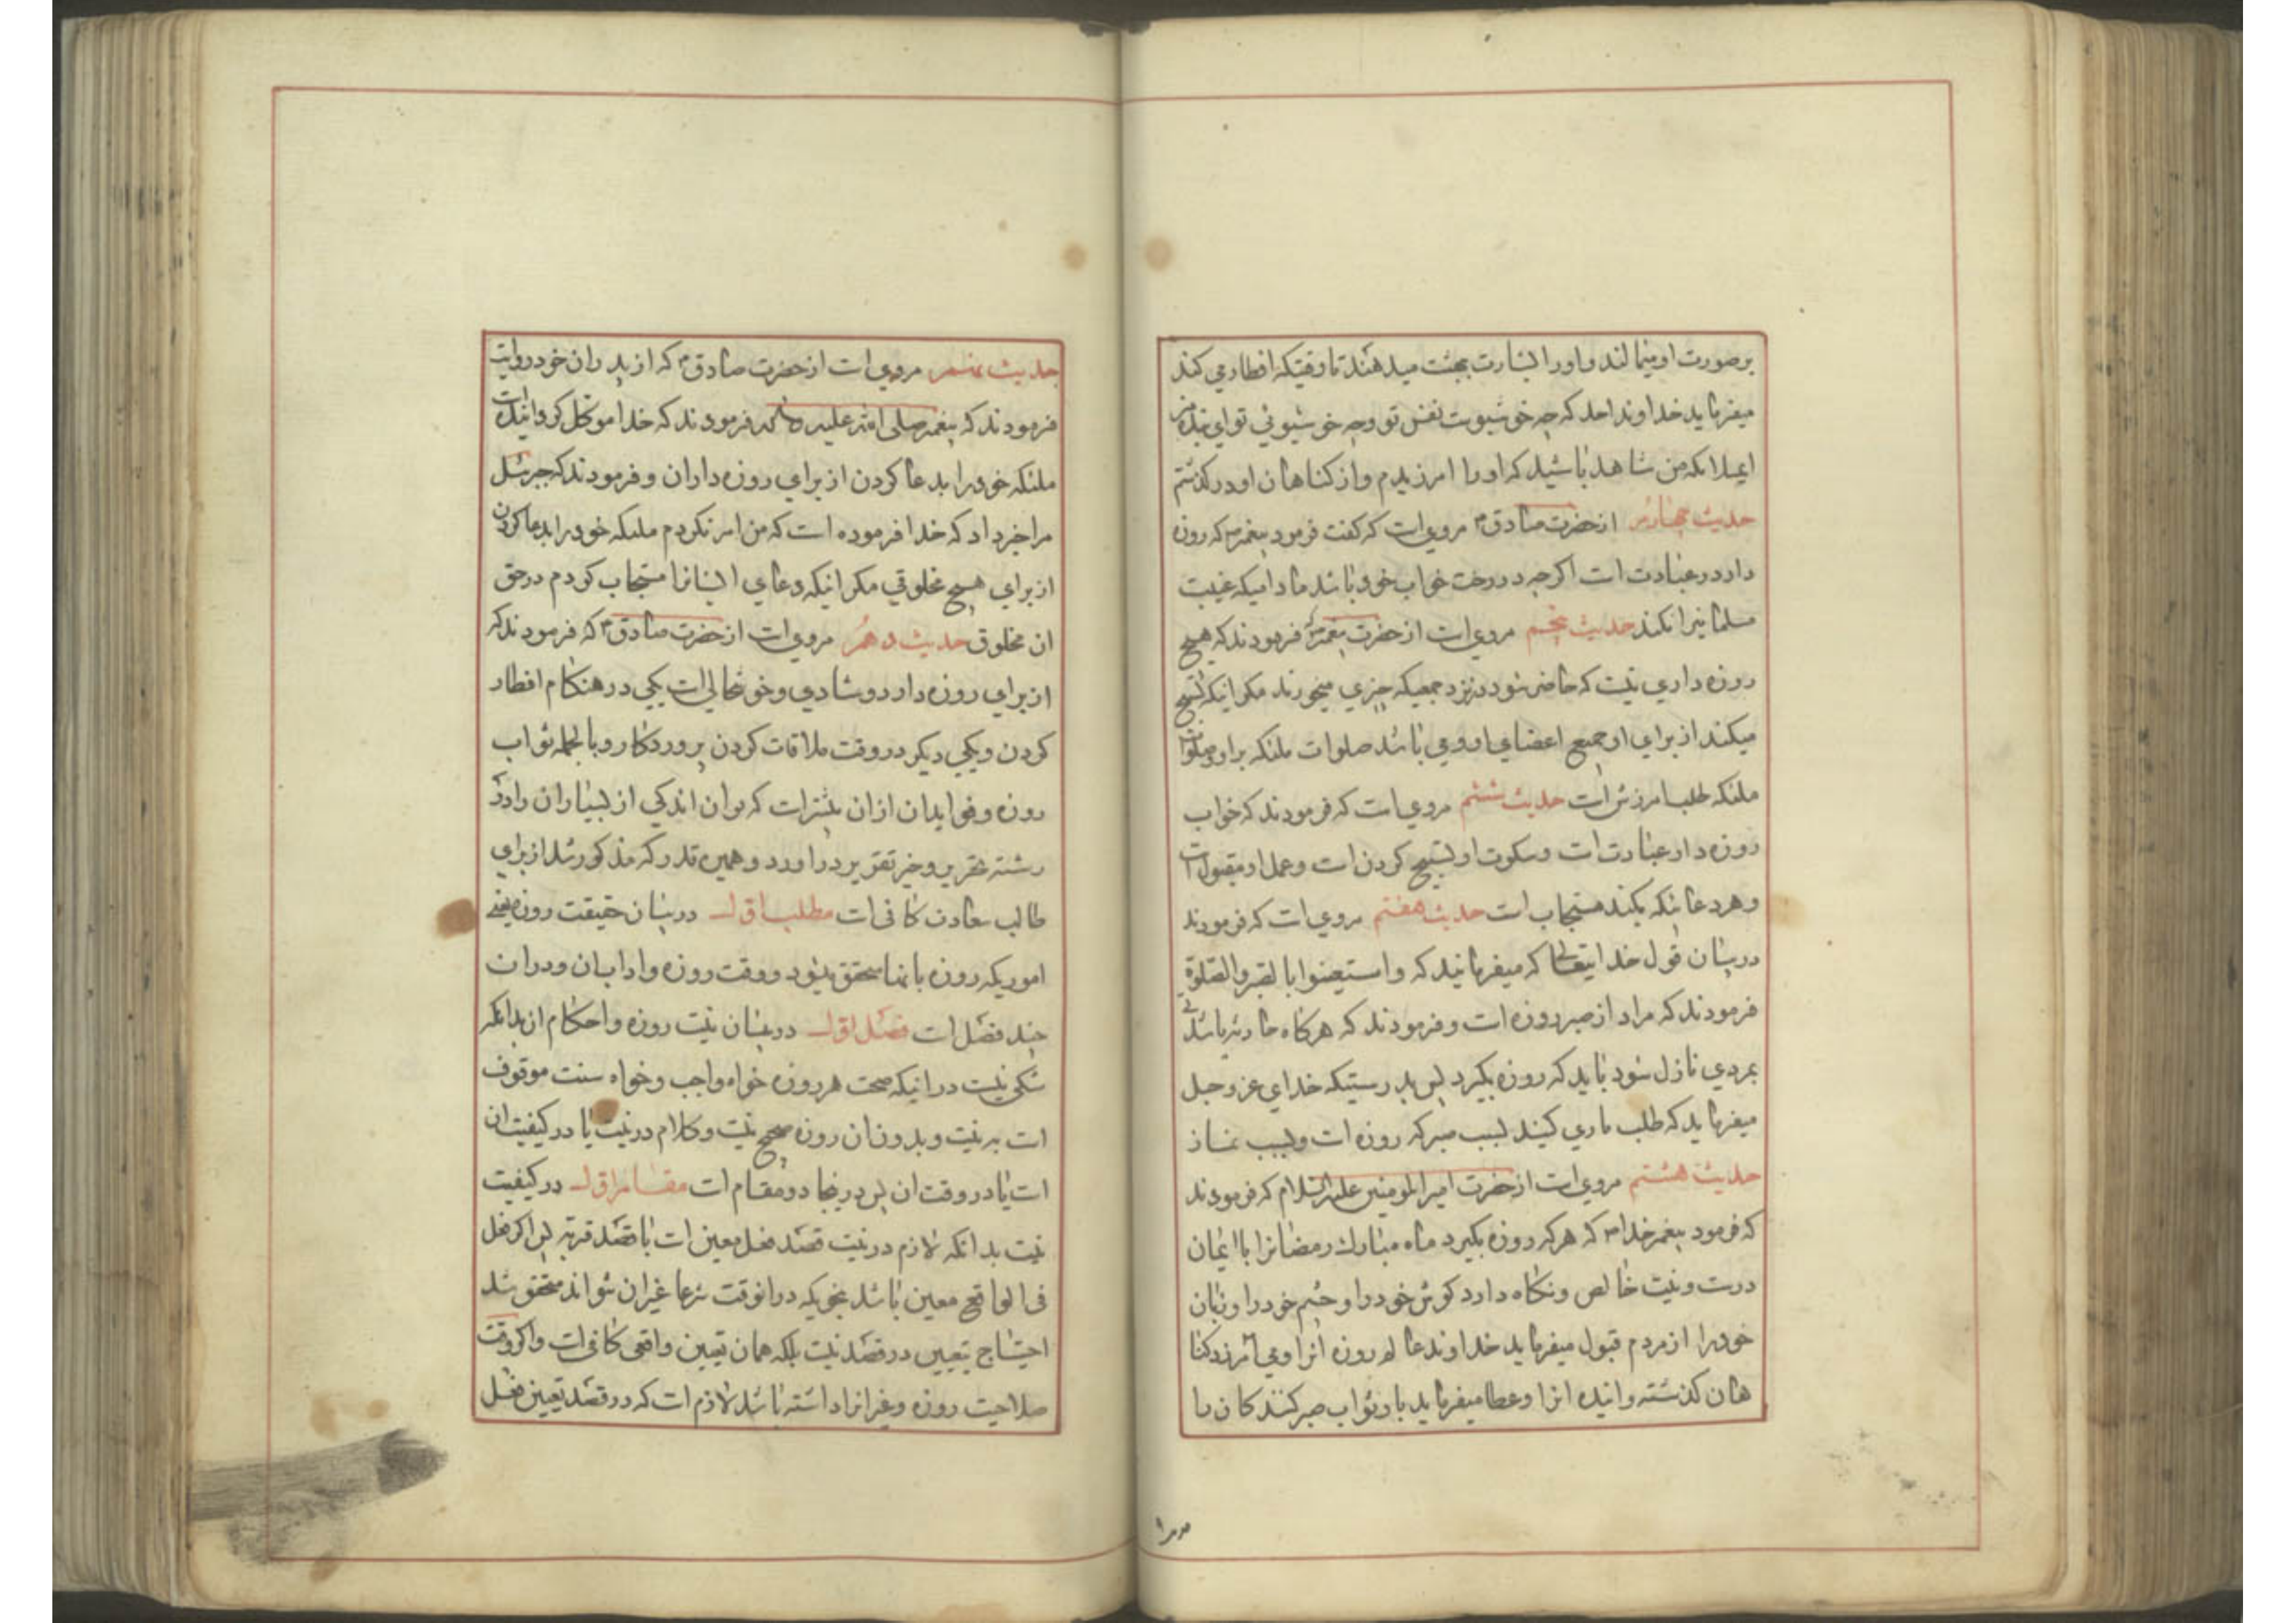 برصورت او میمالند و او را بشارت بجنت میدهند تا وقتیکه افطار می کند
میفرماید خداوند احد که چه خوشبوست نفس تو و چه خوشبوئی تو ای بنده من
ایملائکه من شاهد باشید که او را امرزیدم و از کناهان او درکذشتم
حدیث چهارم از حضرت صادق۴ مرویست که کفت فرمود پیغمبر۴ که روزه
دار در عبادت است اکرچه در رخت خواب خود باشد مادامیکه غیبت
مسلمانیرا نکند حدیث پنجم مرویست از حضرت پیغمبر۴ فرمودند که هیچ
روزه داری نیست که حاضر شود در نزد جمعیکه چیزی میخورند مکر اینکه تسبیح
میکند از برای او جمیع اعضای او و می باشد صلوات ملئکه بر او و صلوات
ملئکه طلب امرزش است حدیث ششم مرویست که فرمودند که خواب
روزه دار عبادت است و سکوت او تسبیح کردن است و عمل او مقبول است
و هر دعائیکه بکند مستجاب است حدیث هفتم مرویست که فرمودند
در بیان قول خدایتعالی که میفرمانید که واستعینوا بالصبر والصلوة
فرمودند که مراد از صبر روزه است و فرمودند که هرکاه حادثه یا شدتی
بمردی نازل شود باید که روزه بکیرد پس بدرستیکه خدای عز و جل
میفرماید که طلب یاری کنید بسبب صبر که روزه است و بسبب نماز
حدیث هشتم مرویست از حضرت امیرالمومنین علیه السلام که فرمودند
که فرمود پیغمبر خدا۴ که هر که روزه بکیرد ماه مبارک رمضانرا با ایمان
درست و نیت خالص و نکاه دارد کوش خود را و چشم خود را و زبان
خود را از مردم قبول میفرماید خداوند عالم روزه انرا و می آمرزد کنا
هان کذشته و اینده انرا و عطا میفرماید باو ثواب صبر کنندکان را
حدیث نهم مرویست از حضرت صادق۴ که از پدران خود روایت
فرمودند که پیغمبر صلی الله علیه واله فرمودند که خدا موکل کردانیده است
ملئکه خود را بدعا کردن از برای روزه داران و فرمودند که جبرئیل
مرا خبر داد که خدا فرموده است که من امر نکردم ملئکه خود را بدعا کردن
از برای هیچ مخلوقی مکر انیکه دعای ایشانرا مستجاب کردم در حق
ان مخلوق حدیث دهم مرویست از حضرت صادق۴ که فرمودند که
از برای روزه دار دو شادی و خوشحالی است یکی در هنکام افطار
کردن و یکی دیکر در وقت ملاقات کردن پروردکار و بالجمله ثواب
روزه و فوایدان ازان بیشتر است که توان اندکی از بسیاران را در
رشته تحریر و حیز تقریر در اورد و همین قدر که مذکور شد از برای
طالب سعادت کافی است مطلب اول در بیان حقیقت روزه یعنی
اموریکه روزه بانها متحقق میشود و وقت روزه و اداب ان و دران
چند فصل است فصل اول در بیان نیت روزه و احکام ان بدانکه
شکی نیست در انیکه صحت هر روزه خواه واجب و خواه سنت موقوف
است به نیت و بدون ان روزه صحیح نیست و کلام در نیت یا در کیفیت ان
است یا در وقت ان پس در ینجا دو مقام است مقام اول در کیفیت
نیت بدانکه لازم در نیت قصد فعل معین است با قصد قربه پس اکر فعل
فی الواقع معین باشد بنحویکه در انوقت شرعا غیر ان نتواند متحقق شد
احتیاج بتعیین در قصد نیست بلکه همان تعیین واقعی کافی است و اکر وقت
صلاحیت روزه و غیر انرا داشته باشد لازم است که در قصد تعیین فعل